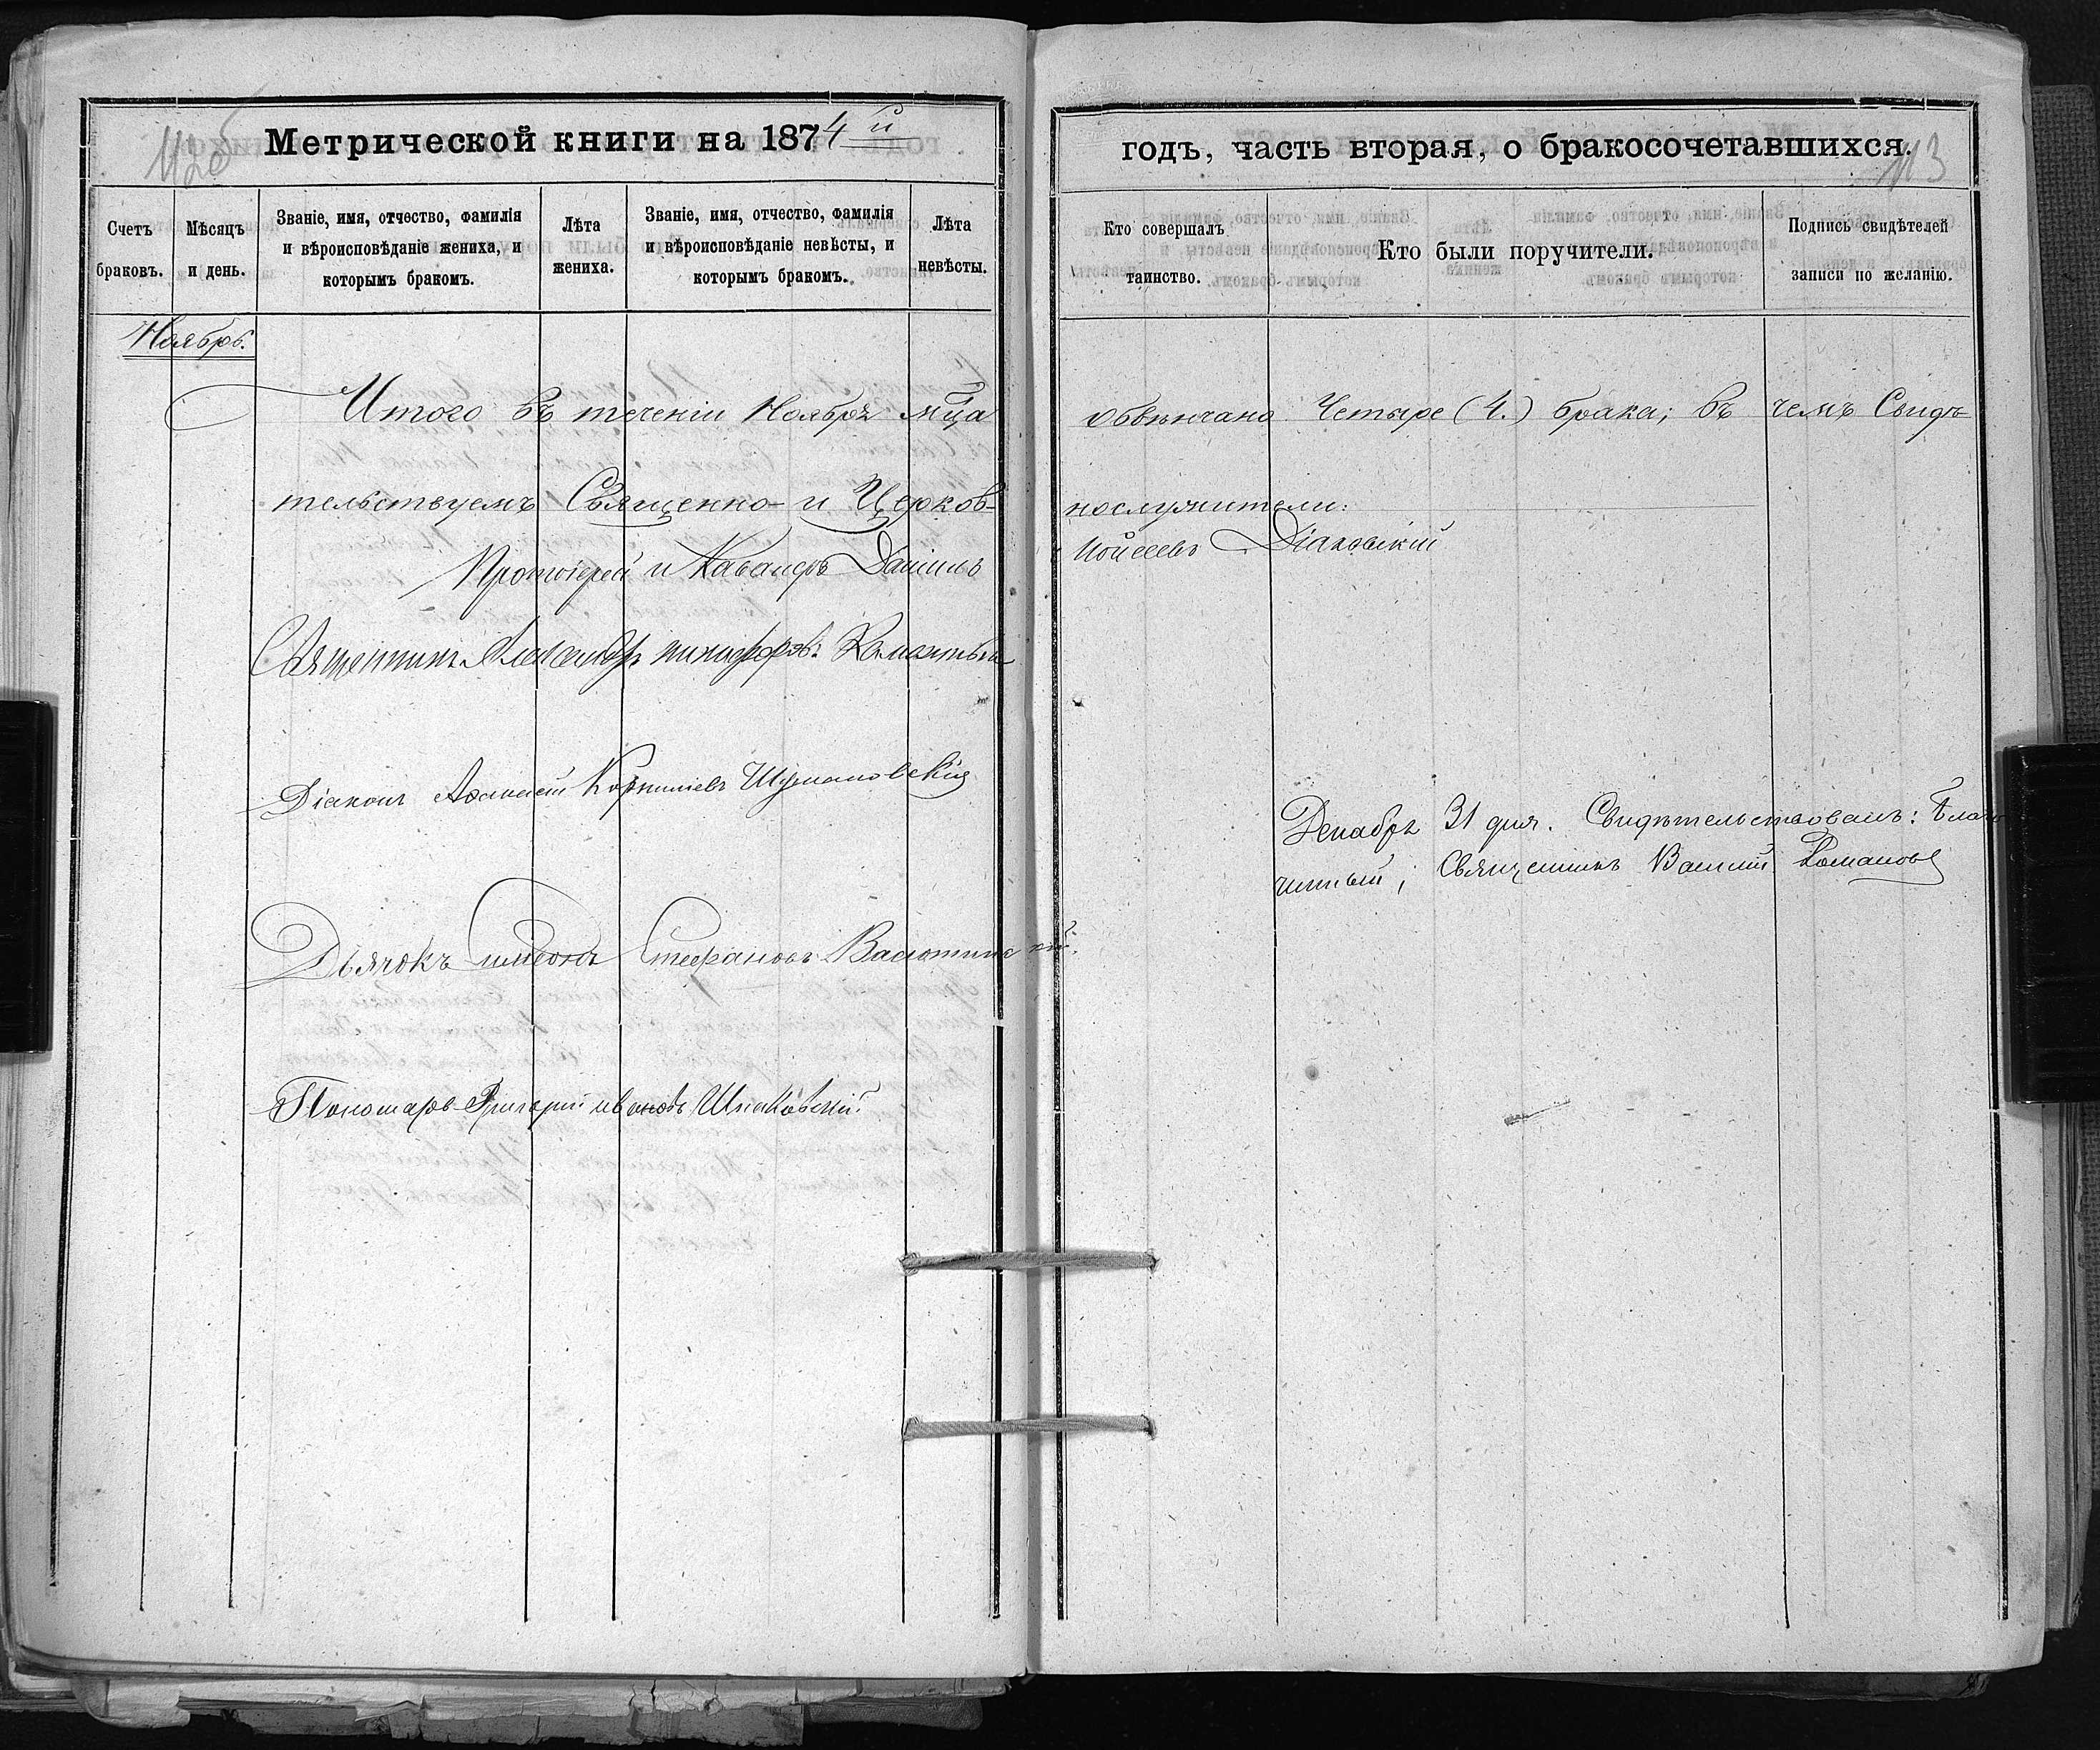 112об
Метрической книги на 1874й
Счетъ браковъ.
Мѣсяцъ и день.
Званіе, имя, отчество, фамилія
и вѣроисповѣданіе жениха, и
которымъ бракомъ.
Лѣта жениха.
Званіе, имя, отчество, фамилія
и вѣроисповѣданіе невѣсты, и
которымъ бракомъ.
Лѣта невѣсты.
Ноябрь.
Итого въ теченіи Ноября мца
тельствуемъ Священно- и Церков-
Протоіерей и Кавалеръ Даніилъ
Священникъ Александръ Никифоровъ
Діаконъ Аѳанасій Корниліевъ Шумановскій
Дьячокъ Симеонъ Стефановъ Васютинскій.
Пономарь Григорій Ивановъ
113
годъ, часть вторая, о бракосочетавшихся.
Кто совершалъ
таинство.
Кто были поручители.
Подпись свидѣтелей
записи по желанію.
обвѣнчано Четыре (4.) брака; въ чемъ Свидѣ-
нослужители:
Мойсеевъ Діаковскій
Декабря 31 дня. Свидѣтельствовалъ: Благо
чинный, Священникъ Василій Романовъ